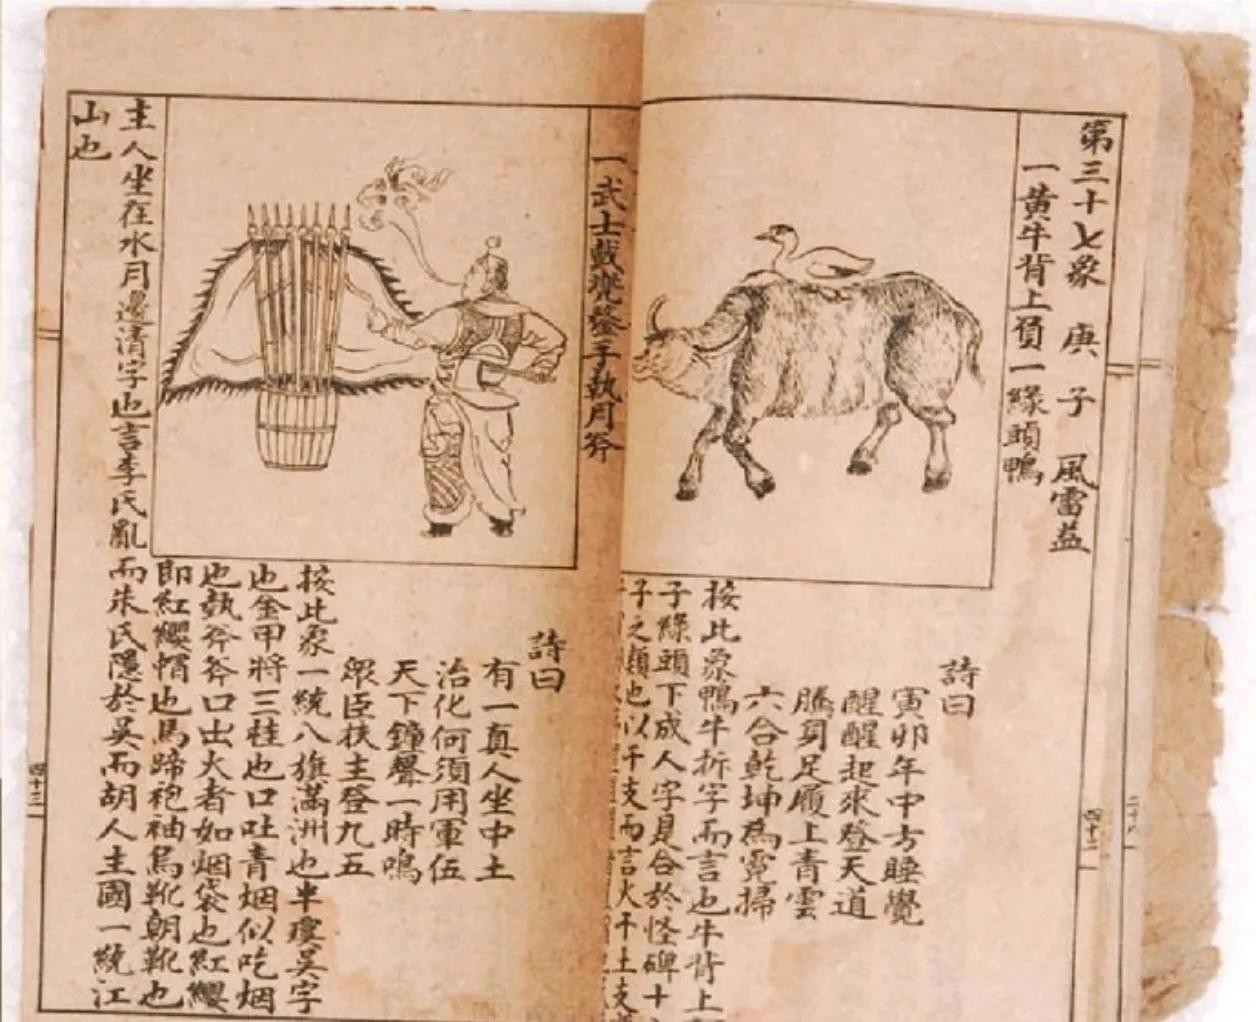 第三十七象 庚子 風雷益
一黃牛背上負一綠頭鴨
詩曰
寅卯年中方睡覺
醒醒起來登天道
騰身足履上青雲
六合乾坤為霓掃
按此象鴨牛拆字而言也牛背上
子綠頭下成人字見合於怪碑十
子之類也以干支而言火干土支
一武士戴兜鍪手執月斧
詩曰
有一真人坐中土
治化何須用軍伍
天下鐘聲一時鳴
眾臣扶主登九五
按此象一統八旗滿洲也半瓊吳字
也金甲將三桂也口吐青烟似吃烟
也執斧斧口出火者如烟袋也紅纓
即紅纓帽也馬蹄袍袖烏靴朝靴也
主人坐在水月邊清字也言李氏亂而朱氏隱於吳而胡人主國一統江
山也
四十二
四十三